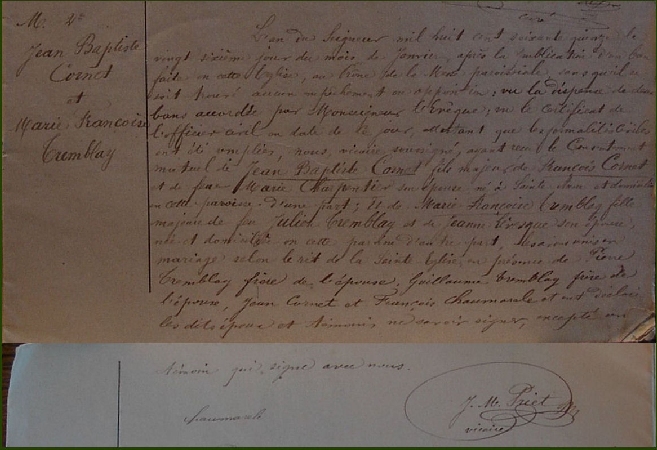 curé
M. 2e
Jean Baptiste
Cornet
et
Marie Françoise
Tremblay
L'an du Seigneur mil huit cent soixante quinze le
vingt sixième jour du mois de Janvier, après la publication d'un ban
faite en cette Eglise, au Prône de la Messe paroissiale, sans qu'il se
soit trouvé aucun empêchement ou opposition; vu la dispense de deux
bans accordée par Monseigneur l'Evêque; vu le certificat de
l'officier civil en date de ce jour, attestant que les formalités civiles
ont été remplies, nous, vicaire soussigné, ayant reçu le Consentement
mutuel de Jean Baptiste Cornet fils majeur de François Cornet
et de feue Marie Charpentier son épouse né à Sainte Anne et domicilié
en cette paroisse d'une part; Et de Marie Françoise Tremblay fille
majeure de feu Julien Tremblay et de Jeanne son épouse,
née et domiciliée en cette paroisse d'autre part, les avons unis en
mariage selon le rit de la Sainte Eglise, en présence de Pierre
Tremblay frère de l'épouse, Guillaume Tremblay frère de
l'épouse, Jean Cornet et François qui ont déclaré
les dits époux et témoins ne savoir signer, excepté un
témoin qui signe avec nous.
J. M. Priet
vicaire